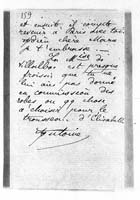 159
et ensuite il compte
revenir à Paris avec toi.
chère Maria
je t'embrasse.
J. et de
Villallier est presque
froissée que tu ne
lui aies pas donné
en commission des
robes ou qq chose
à choisir pour le
trousseau d'Elisabeth
Antoine